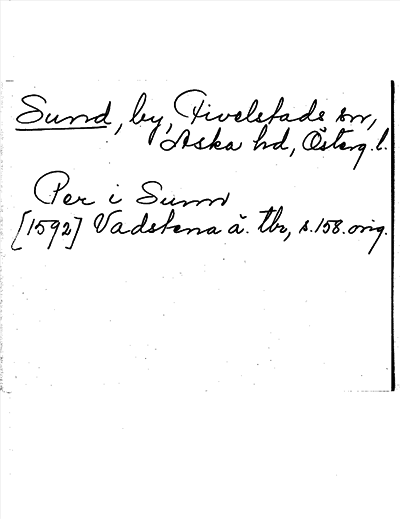 Sund, by, Fivelstads sn,
Aska hd, Österg. l.
Per i Sunn
[1592] Vadstena ä. tbr, s. 158. orig.